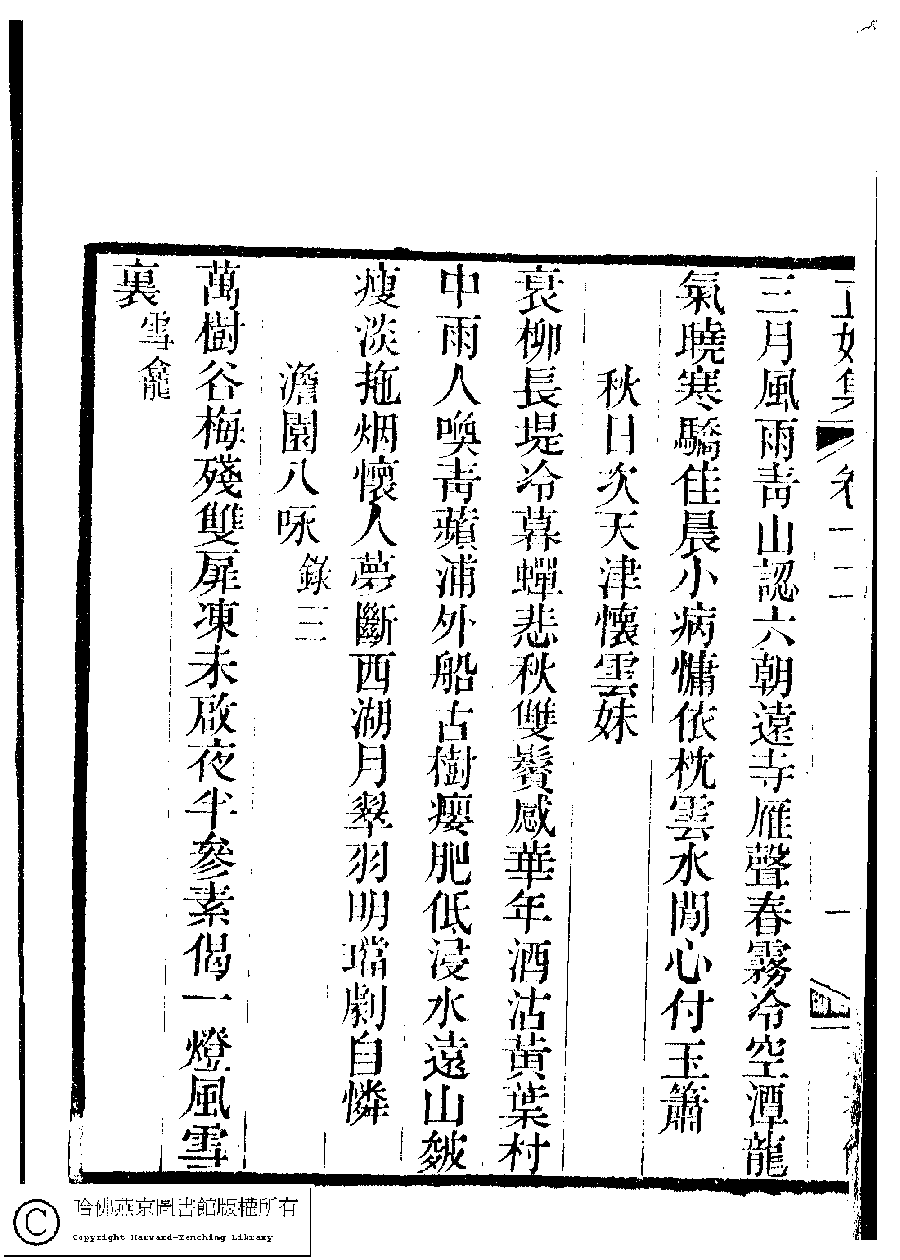 三月風雨青山認六朝遠寺雁聲春霧冷空潭龍
氣曉寒驕佳晨小病慵依枕雲水閒心付玉簫
秋日次天津懷雲妹
衰柳長堤冷暮蟬悲秋雙鬢感華年酒沽黃葉村
中雨人喚青蘋浦外船古樹癭肥低浸水遠山皴
瘦淡拖烟懷人夢斷西湖月翠羽明璫劇自憐
澹園八咏 錄三
萬樹谷梅殘雙扉凍未啟夜半參素偈一燈風雪
裏 雪龕
哈佛燕京圖書館版權所有
Copyright Harvard-Yenching Library